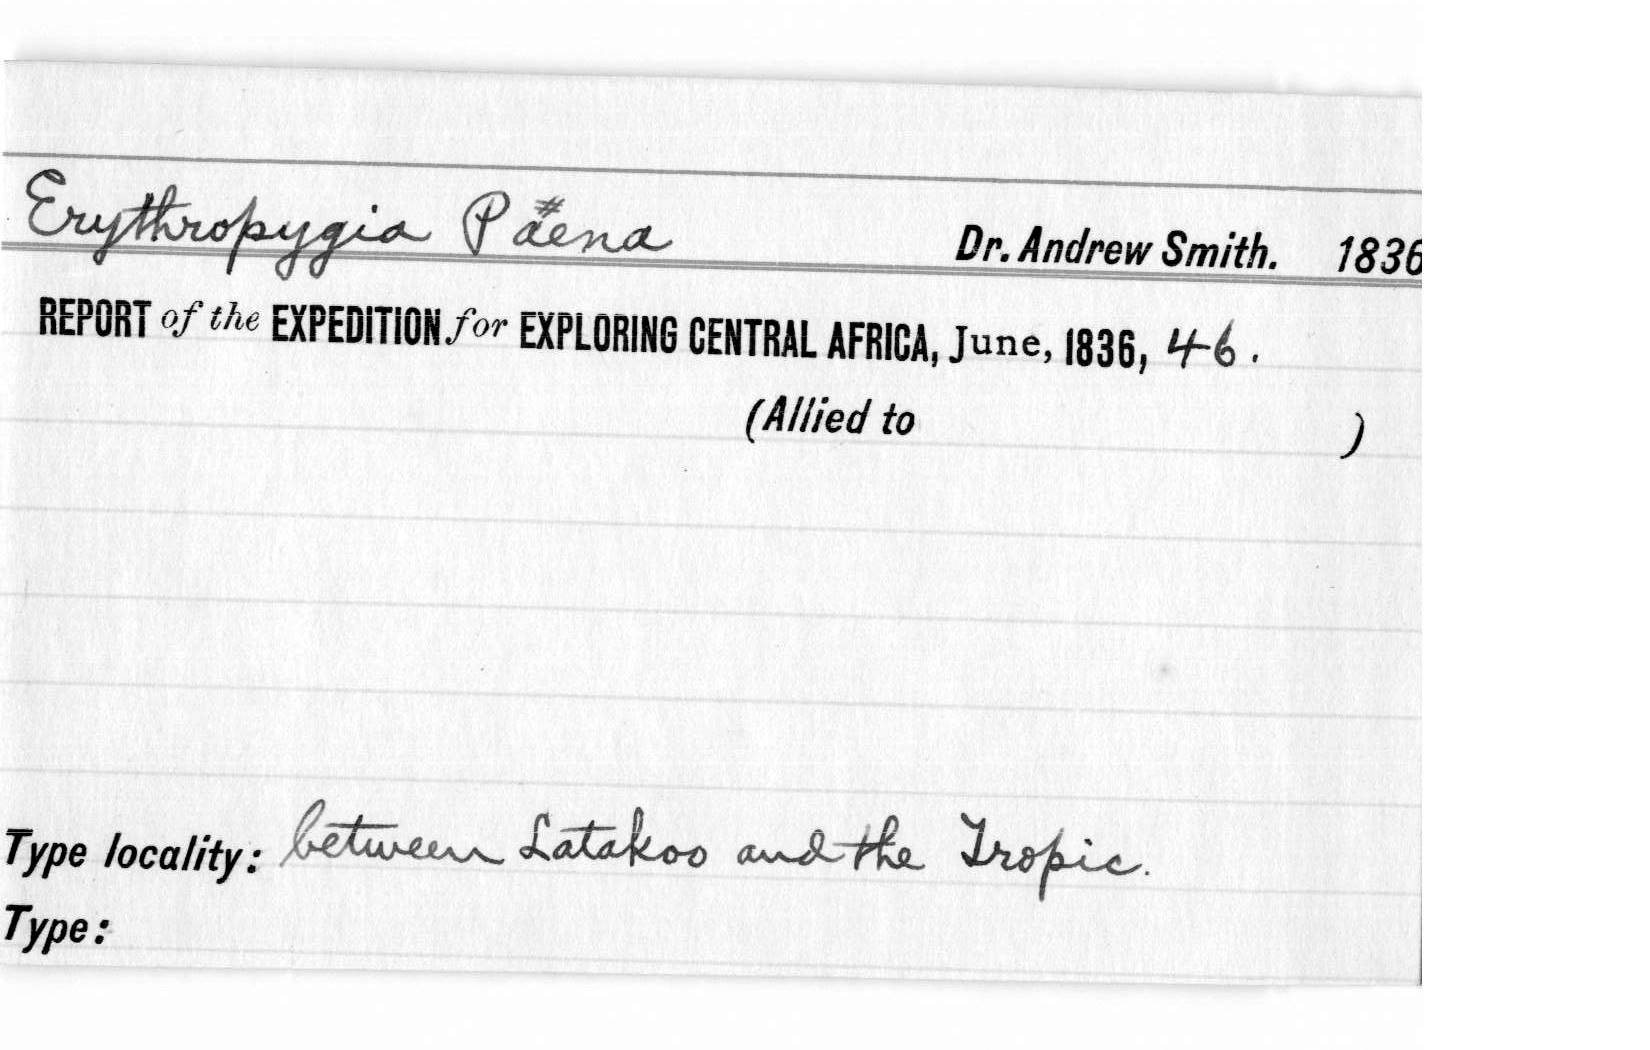 Erythropygia Päena Dr. Andrew Smith. 1836
REPORT of the EXPEDITION for EXPLORING CENTRAL AFRICA, June, 1836, 46.
(Allied to )
Type locality: between Latakoo and the Tropic.
Type: